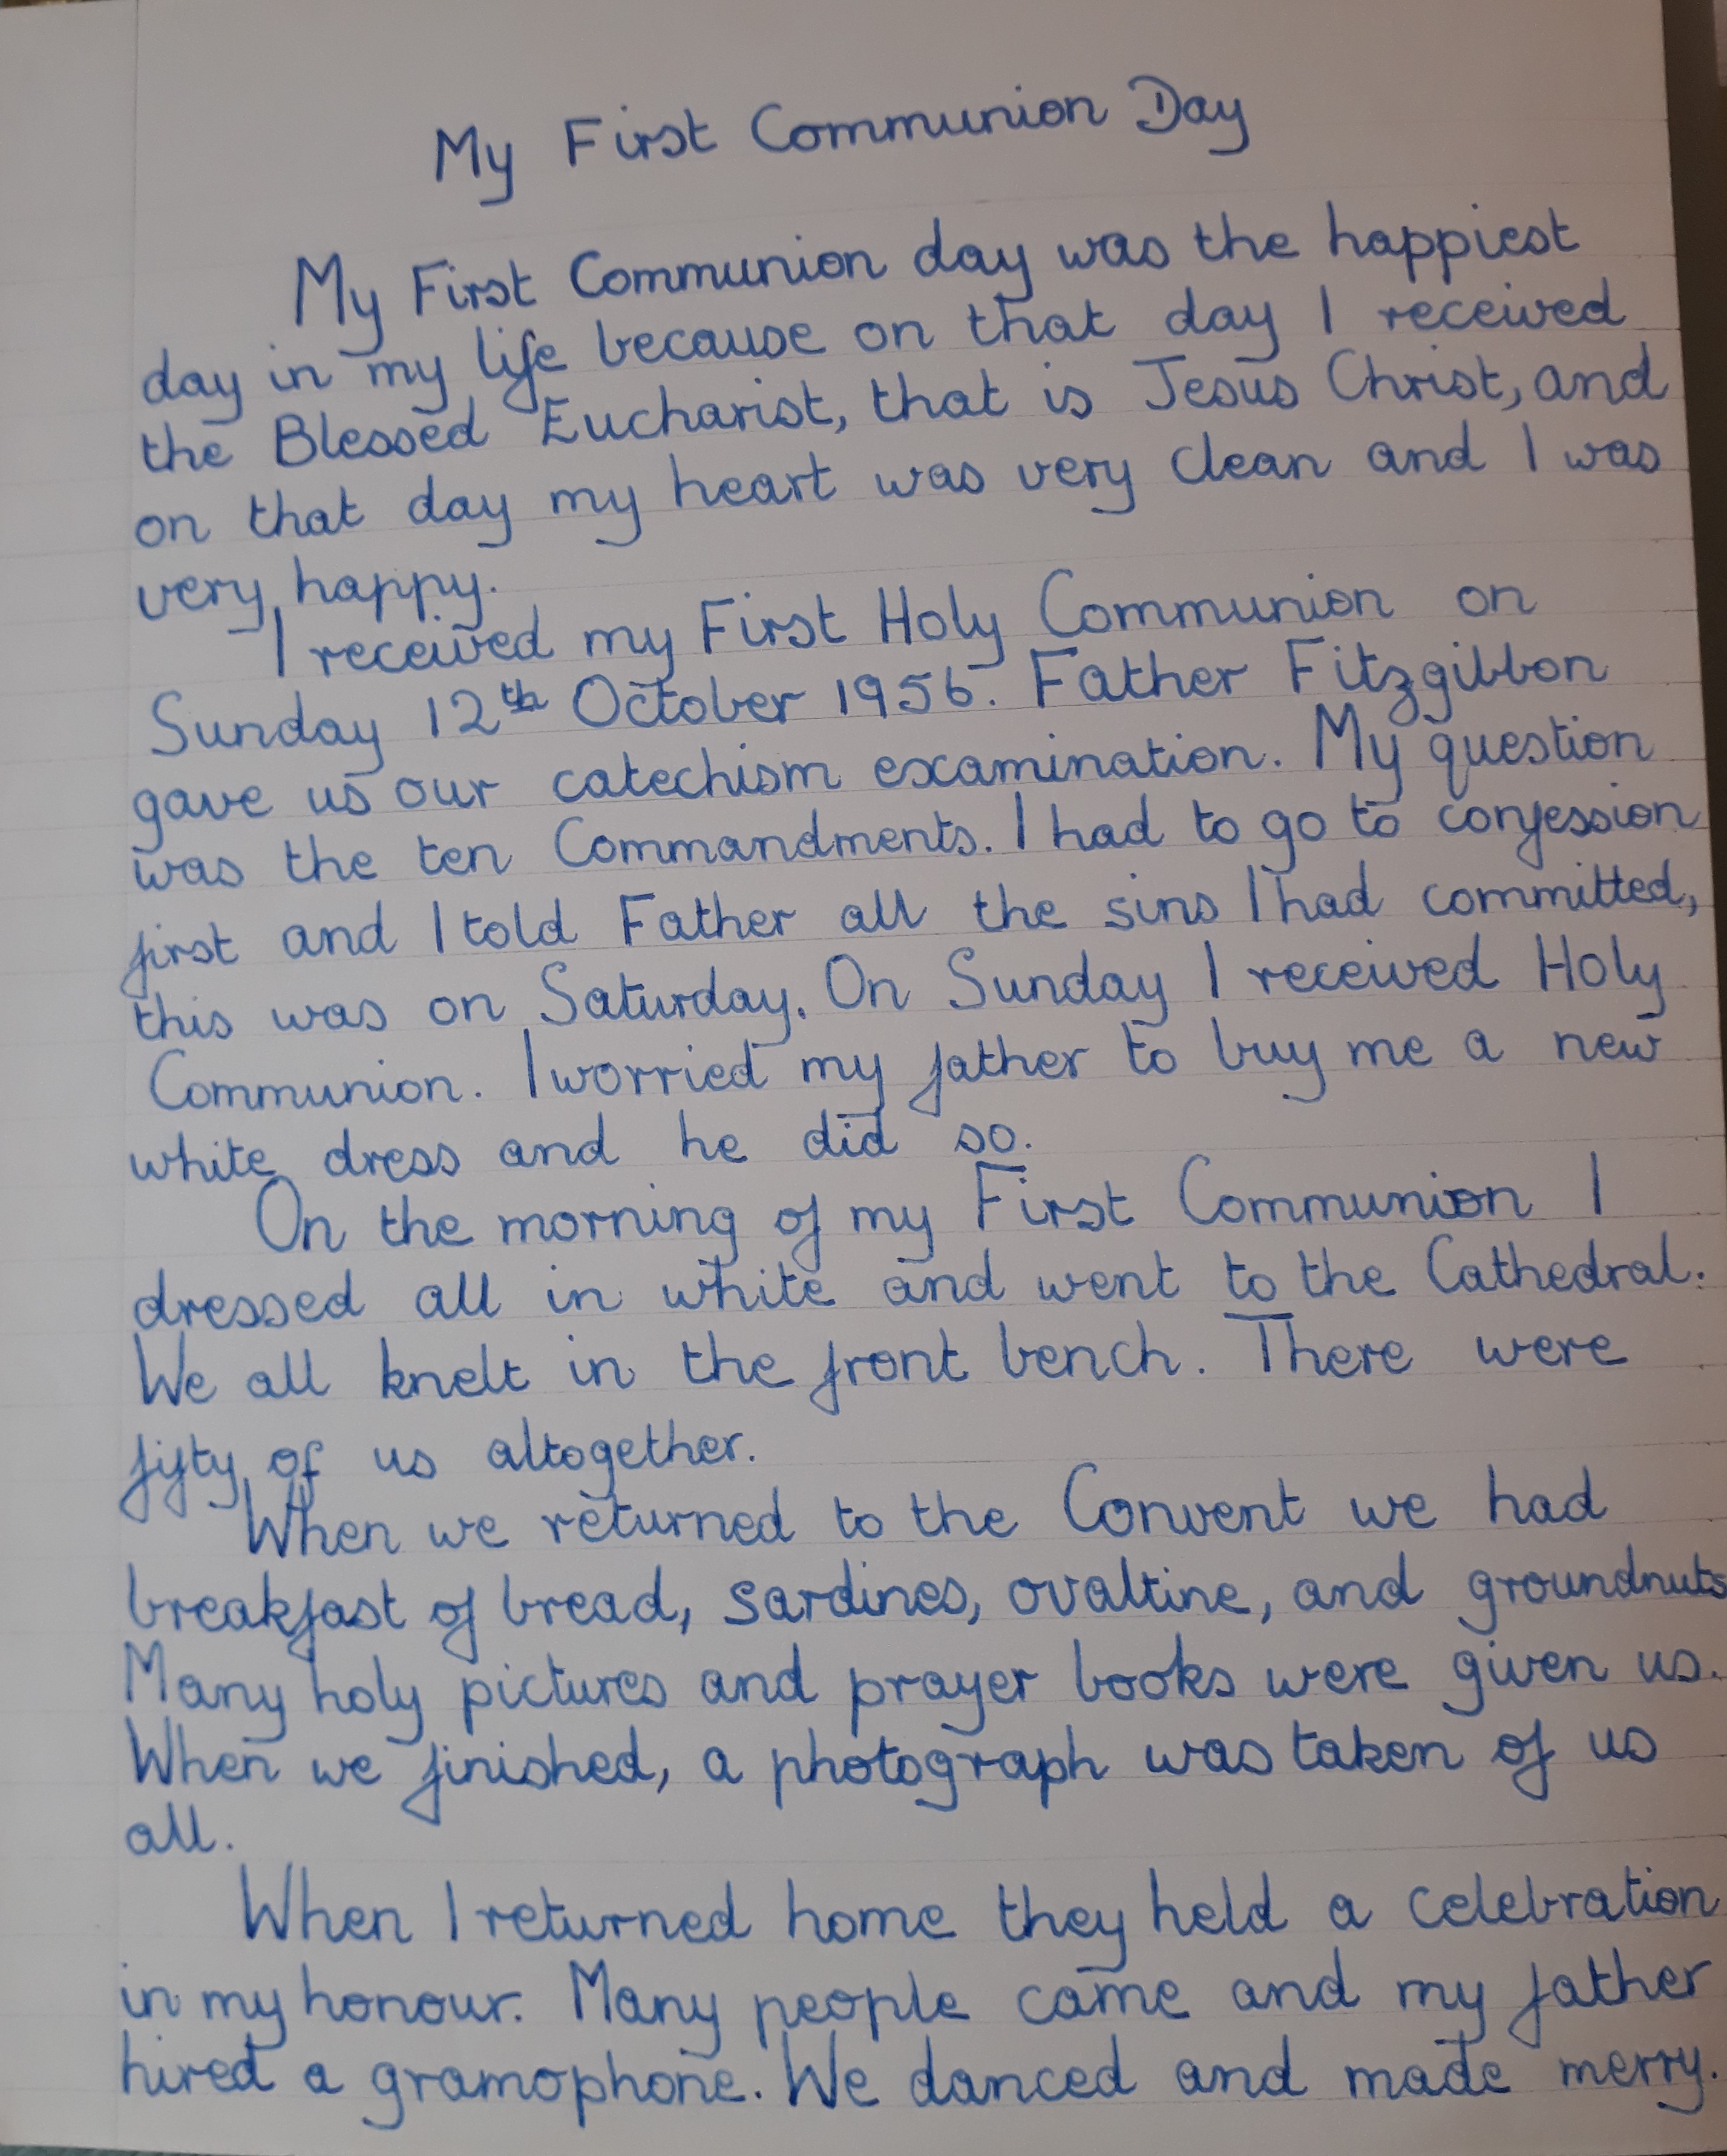 My First Communion Day
My First Communion day was the happiest
day in my life because on that day I received
the Blessed Eucharist, that is Jesus Christ, and
on that day my heart was very clean and I was
very happy.
I received my First Holy Communion on
Sunday 12th October 1956. Father Fitzgibbon
gave us our catechism examination. My question
was the ten Commandments. I had to go to confession
first and I told Father all the sins I had committed,
this was on Saturday. On Sunday I received Holy
Communion. I worried my father to buy me a new
white dress and he did so.
On the morning of my First Communion I
dressed all in white and went to the Cathedral.
We all knelt in the front bench. There were
fifty of us altogether.
When we returned to the Convent we had
breakfast of bread, sardines, ovaltine, and groundnuts
Many holy pictures and prayer books were given us.
When we finished, a photograph was taken of us
all.
When I returned home they held a celebration
in my honour. Many people came and my father
hired a gramophone. We danced and made merry.